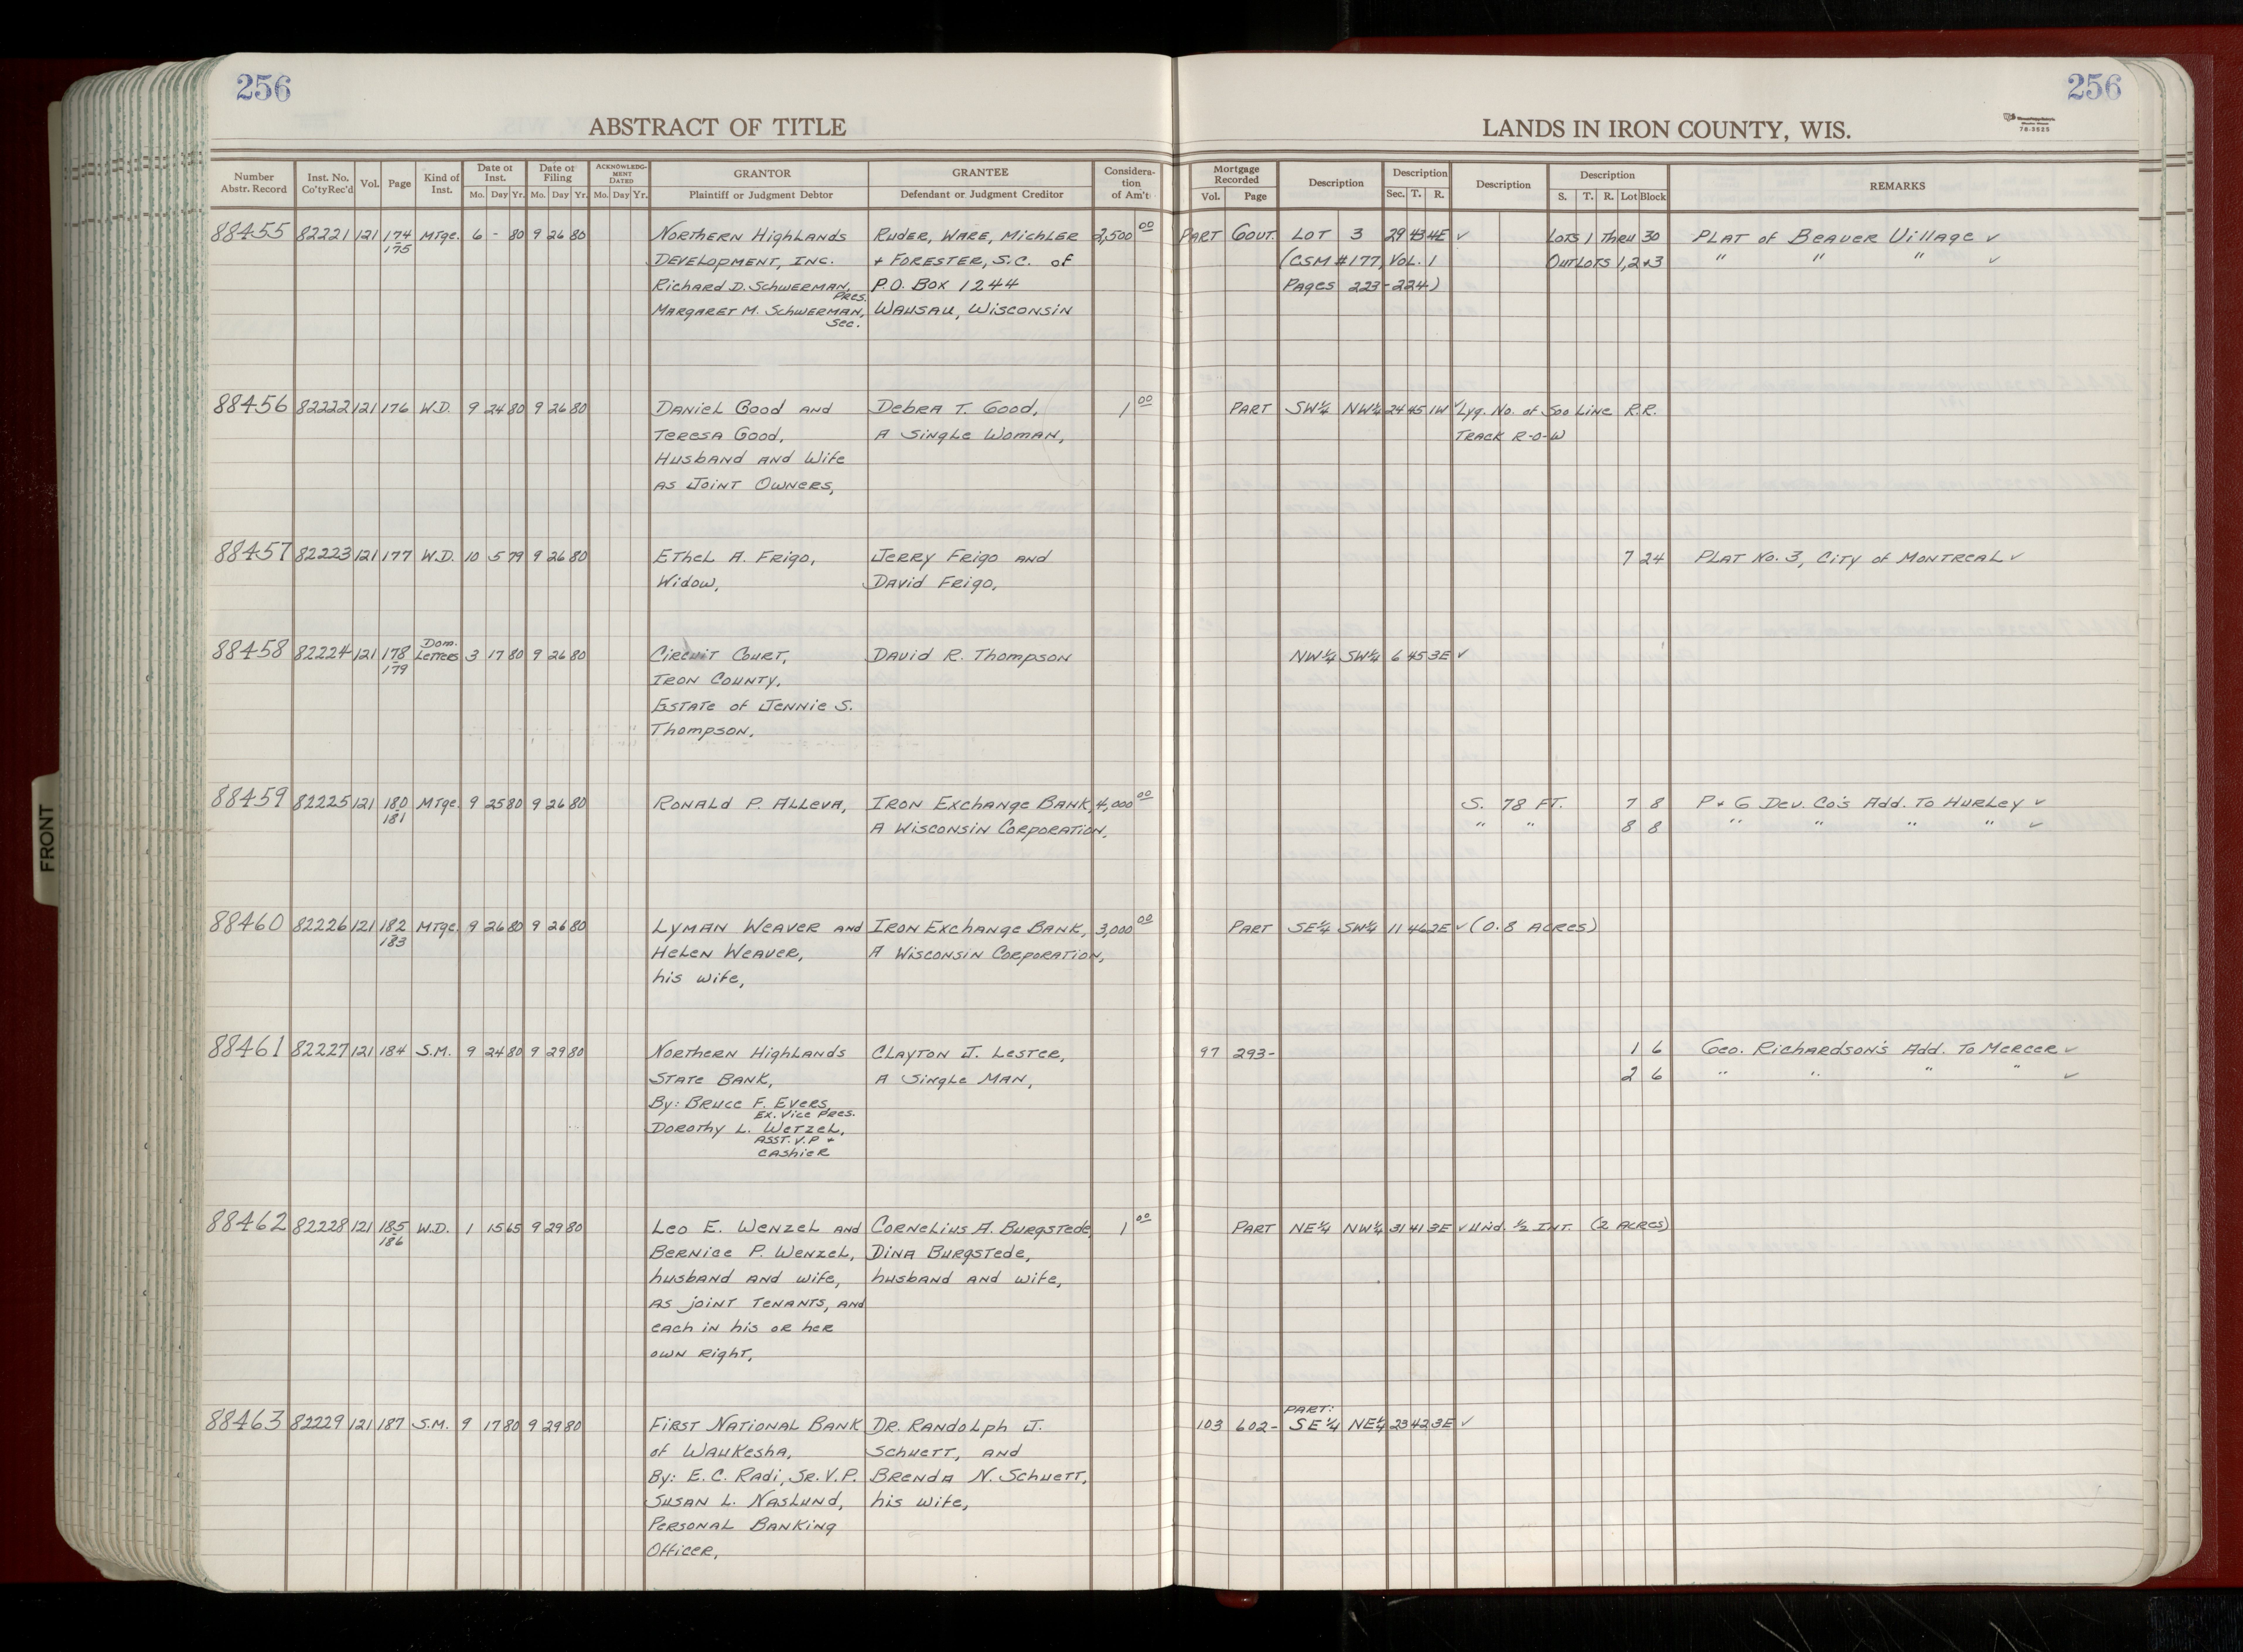 256
256
ABSTRACT OF TITLE
LANDS IN IRON COUNTY, WIS.
78-3525
Number Abstr. Record | Inst. No. Co'ty Rec'd | Vol. | Page | Kind of Inst. | Date of Inst. Mo. Day Yr. | Date of Filing Mo. Day Yr. | ACKNOWLEDGMENT DATED Mo. Day Yr. | GRANTOR Plaintiff or Judgment Debtor | GRANTEE Defendant or Judgment Creditor | Consideration of Am't | Mortgage Recorded Vol. Page | Description | Description Sec. T. R. | Description | Description S. T. R. Lot Block | REMARKS
88455 82221 121 174 Mtge. 6 - 80 9 26 80 Northern Highlands Ruder, Ware, Michler 2,500 00 Part Govt. Lot 3 29 43 4E ✓ Lots 1 thru 30 Plat of Beaver Village ✓
175 Development, Inc. + Forester, S.C. of (CSM #177, Vol. 1 Outlots 1, 2 + 3 " " " ✓
Richard D. Schwerman, Pres. P.O. Box 1244 Pages 223-224)
Margaret M. Schwerman, Sec. Wausau, Wisconsin
88456 82222 121 176 W.D. 9 24 80 9 26 80 Daniel Good and Debra T. Good, 1 00 Part SW¼ NW¼ 24 45 1W ✓ Lyg. No. of Soo Line R.R.
Teresa Good, A Single Woman, Track R-O-W
Husband and Wife
as Joint Owners,
88457 82223 121 177 W.D. 10 5 79 9 26 80 Ethel A. Frigo, Jerry Frigo and 7 24 Plat No. 3, City of Montreal ✓
Widow, David Frigo,
88458 82224 121 178 Dom. Letters 3 17 80 9 26 80 Circuit Court, David R. Thompson NW¼ SW¼ 6 45 3E ✓
179 Iron County,
Estate of Jennie S.
Thompson,
88459 82225 121 180 Mtge. 9 25 80 9 26 80 Ronald P. Alleva, Iron Exchange Bank, 4,000 00 S. 78 Ft. 7 8 P + G Dev. Co's Add. To Hurley ✓
181 A Wisconsin Corporation, " " 8 8 " " " " ✓
88460 82226 121 182 Mtge. 9 26 80 9 26 80 Lyman Weaver and Iron Exchange Bank, 3,000 00 Part SE¼ SW¼ 11 46 2E ✓ (0.8 Acres)
183 Helen Weaver, A Wisconsin Corporation,
his wife,
88461 82227 121 184 S.M. 9 24 80 9 29 80 Northern Highlands Clayton J. Lester, 97 293- 1 6 Geo. Richardson's Add. To Mercer ✓
State Bank, A Single Man, 2 6 " " " " ✓
By: Bruce F. Evers,
Ex. Vice Pres.
Dorothy L. Wetzel,
Asst. V.P +
Cashier
88462 82228 121 185 W.D. 1 15 65 9 29 80 Leo E. Wenzel and Cornelius A. Burgstede, 1 00 Part NE¼ NW¼ 31 41 3E ✓ Und. ½ Int. (2 Acres)
186 Bernice P. Wenzel, Dina Burgstede,
husband and wife, husband and wife,
as joint tenants, and
each in his or her
own right,
88463 82229 121 187 S.M. 9 17 80 9 29 80 First National Bank Dr. Randolph J. 103 602- Part: SE¼ NE¼ 23 42 3E ✓
of Waukesha, Schuett, and
By: E.C. Radi, Sr. V.P. Brenda N. Schuett,
Susan L. Naslund, his wife,
Personal Banking
Officer,
FRONT